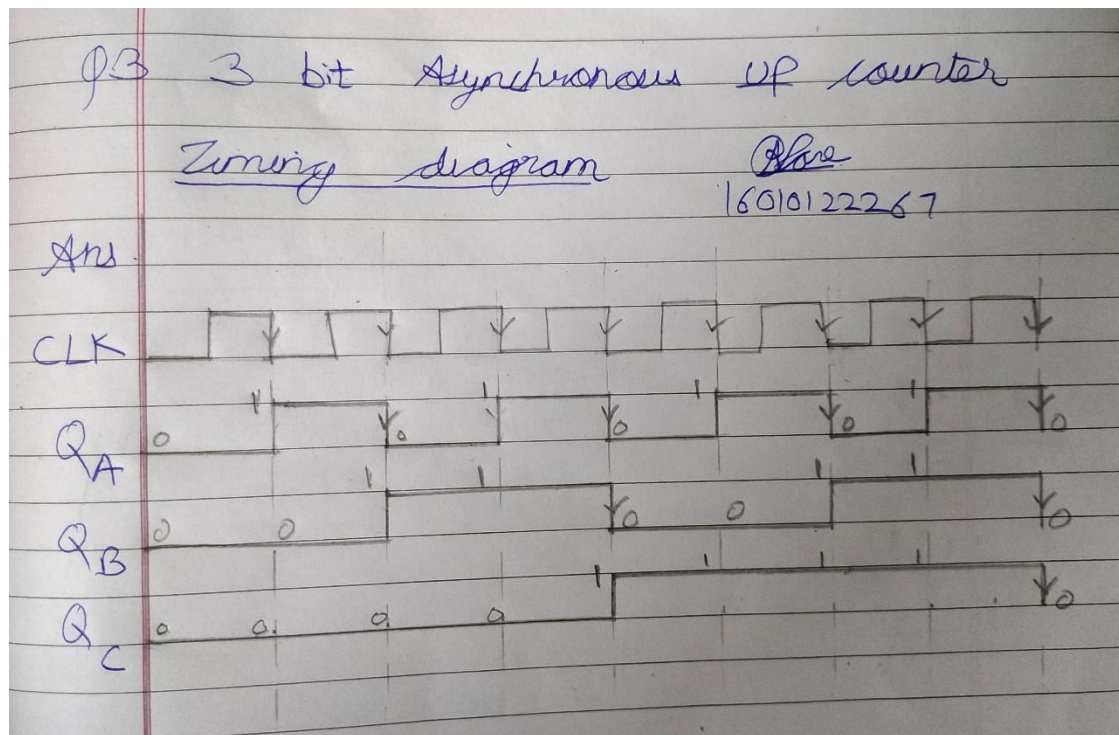 Q3 3 bit Asynchronous UP counter
Timing diagram
16010122267
Ans.
CLK
1 1 1 1
QA 0 0 0 0 0
1 1 1 1
QB 0 0 0 0 0
1 1 1 1
QC 0 0 0 0 0